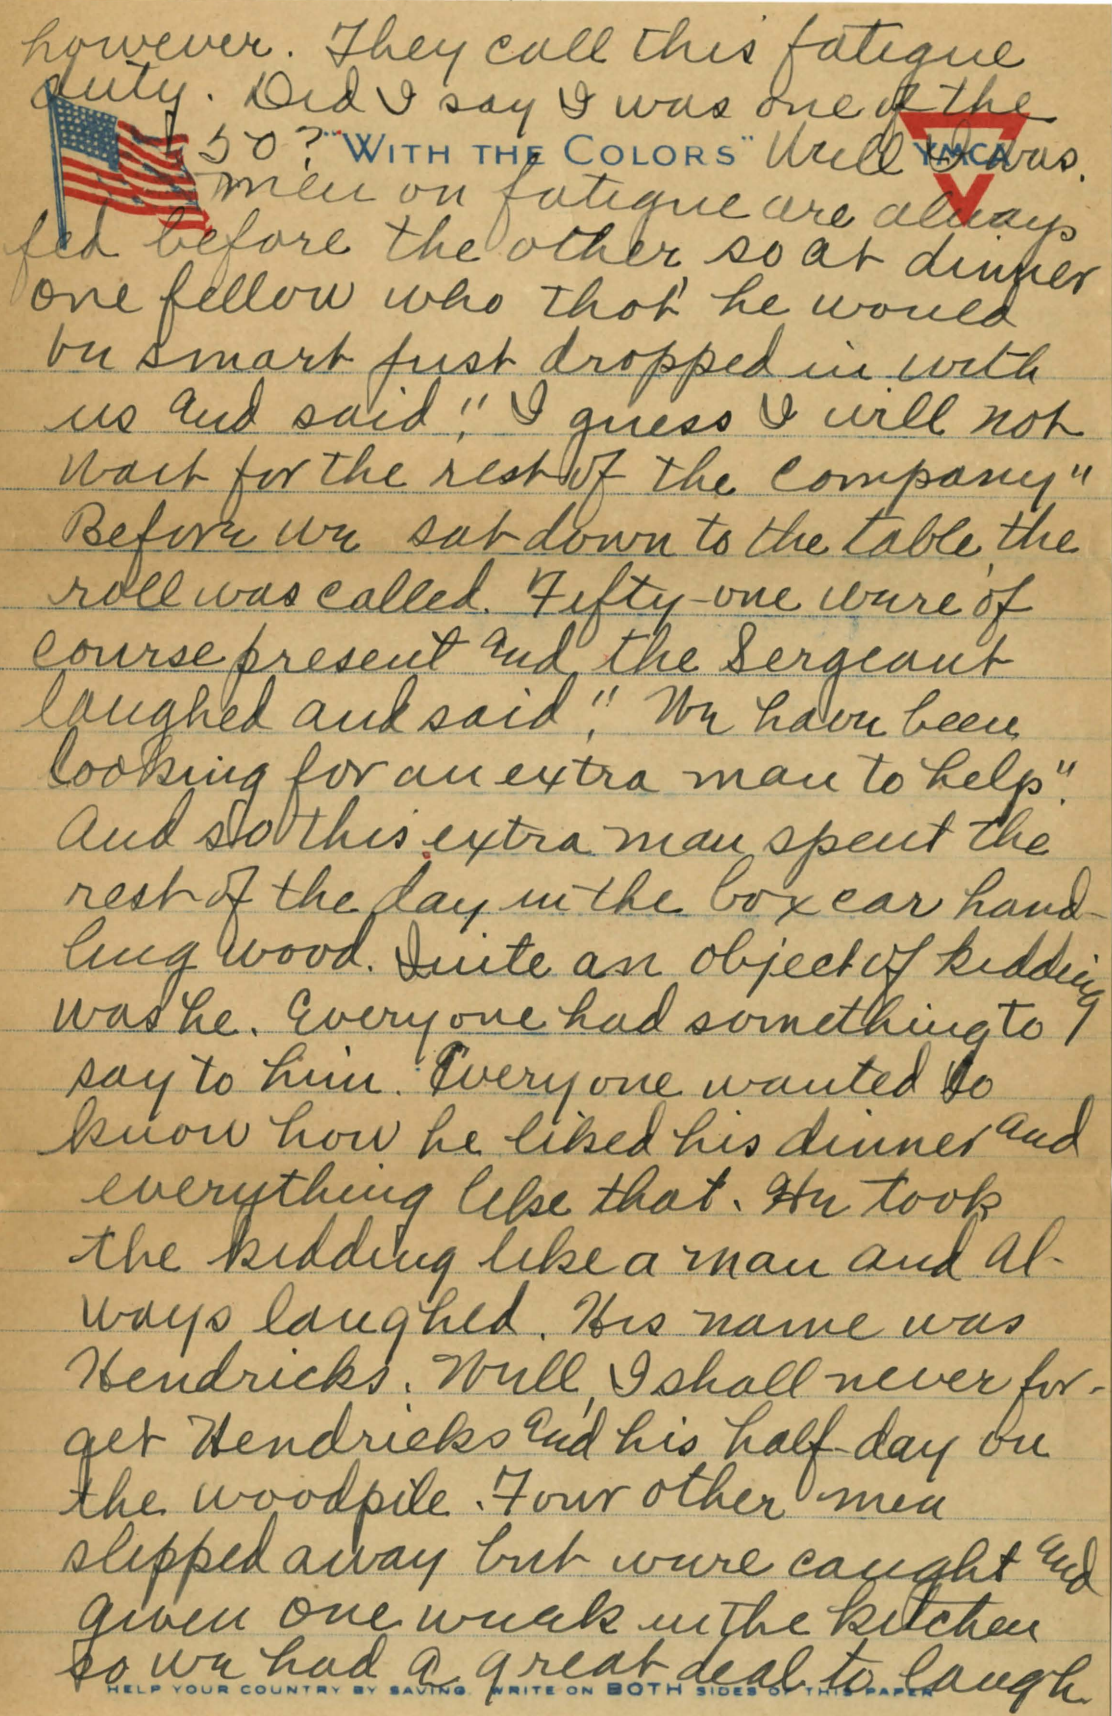 however. They call this fatigue
duty. Did I say I was one of the
50? "WITH THE COLORS" Well I was.
YMCA
men on fatigue are always
fed before the other, so at dinner
one fellow who tho't he would
be smart just dropped in with
us and said, "I guess I will not
wait for the rest of the company"
Before we sat down to the table, the
roll was called. Fifty-one were of
course present and the Sergeant
laughed and said, "We have been
looking for an extra man to help".
And so this extra man spent the
rest of the day in the box car hand-
ling wood. Quite an object of kidding
was he. Everyone had something to
say to him. Everyone wanted to
know how he liked his dinner and
everything like that. He took
the kidding like a man and al-
ways laughed. His name was
Hendricks. Well, I shall never for-
get Hendricks and his half-day on
the woodpile. Four other men
slipped away but were caught and
given one week in the kitchen
so we had a great deal to laugh
HELP YOUR COUNTRY BY SAVING. WRITE ON BOTH SIDES OF THIS PAPER